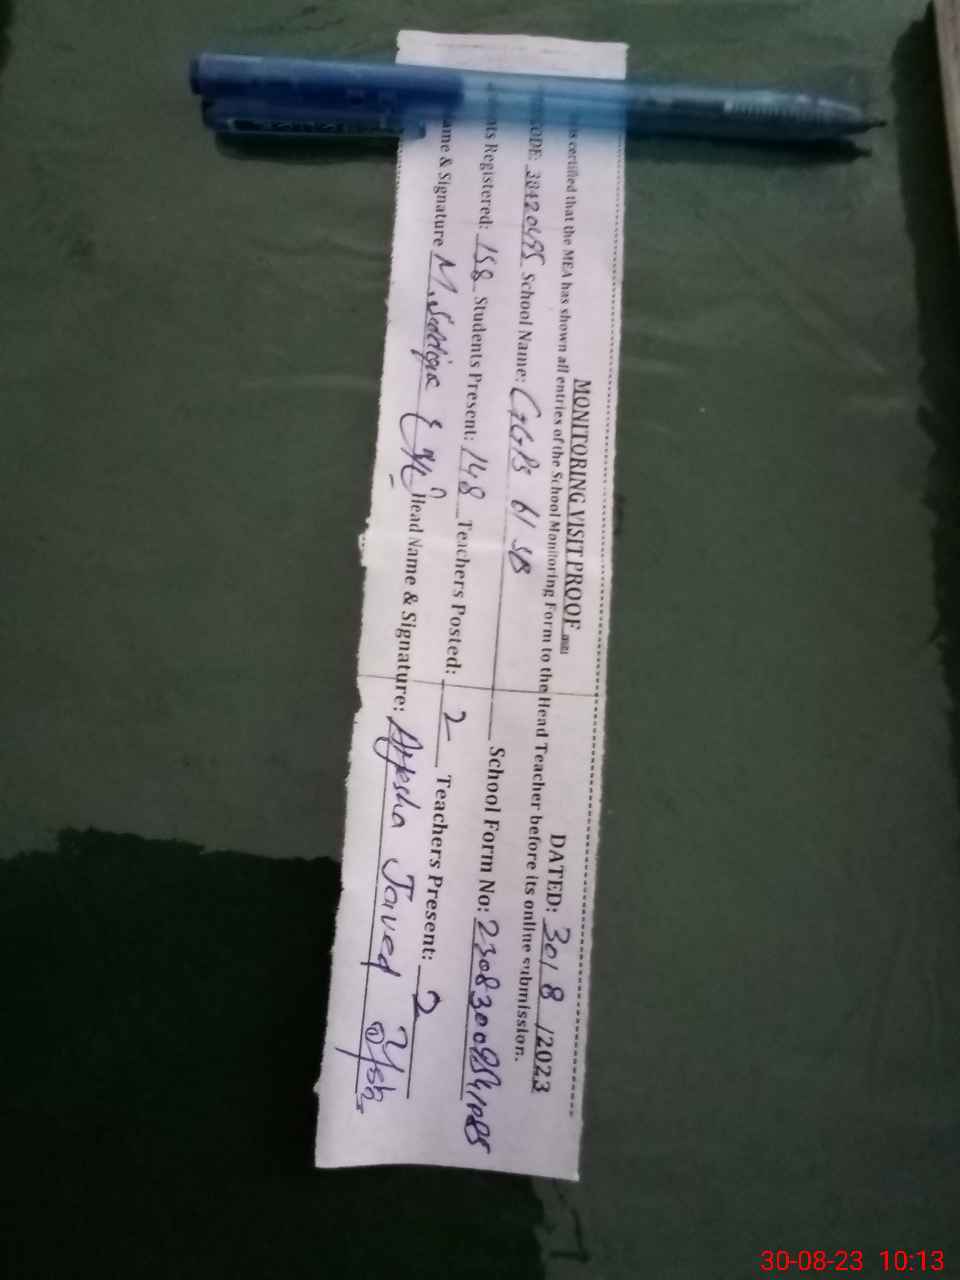 MONITORING VISIT PROOF
DATED: 30/8/2023
certified that the MEA has shown all entries of the School Monitoring Form to the Head Teacher before its online submission.
School Name: GGPS 61 SB School Form No:
nts Registered: 158 Students Present: 148 Teachers Posted: 2 Teachers Present: 2
ame & Signature M. Siddique Head Name & Signature: Ayesha Javed
30-08-23 10:13